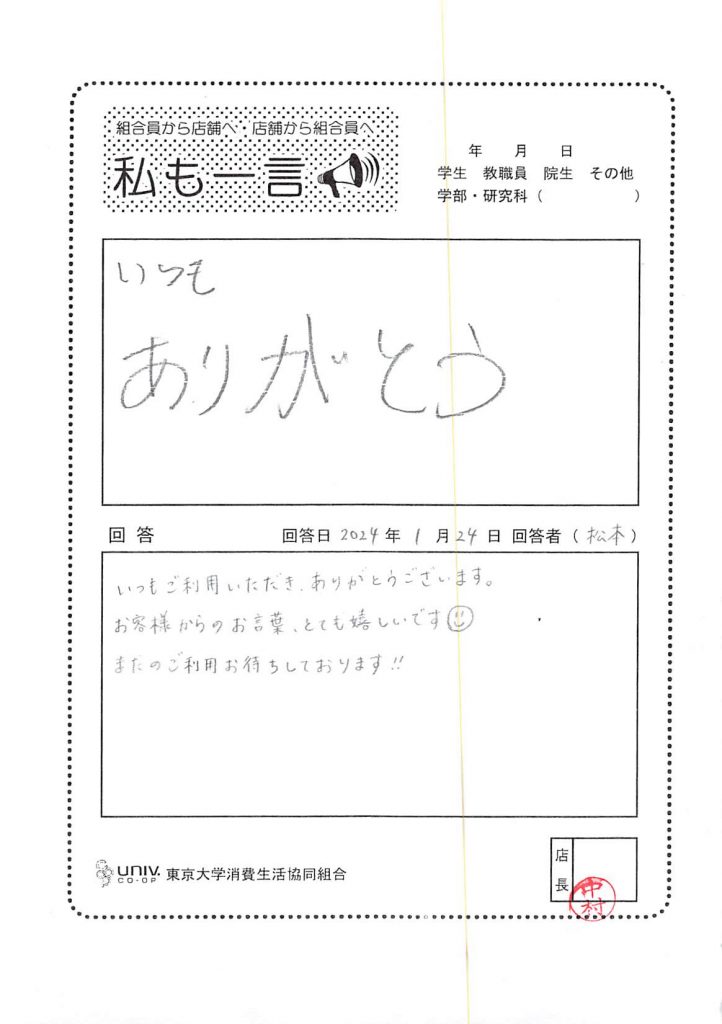 組合員から店舗へ・店舗から組合員へ
私も一言
年 月 日
学生 教職員 院生 その他
学部・研究科（ ）
いつも
ありがとう
回答 回答日 2024 年 1 月 24 日 回答者（松本）
いつもご利用いただき、ありがとうございます。
お客様からのお言葉、とても嬉しいです
またのご利用お待ちしております!!
UNIV. CO-OP 東京大学消費生活協同組合
店長
中村